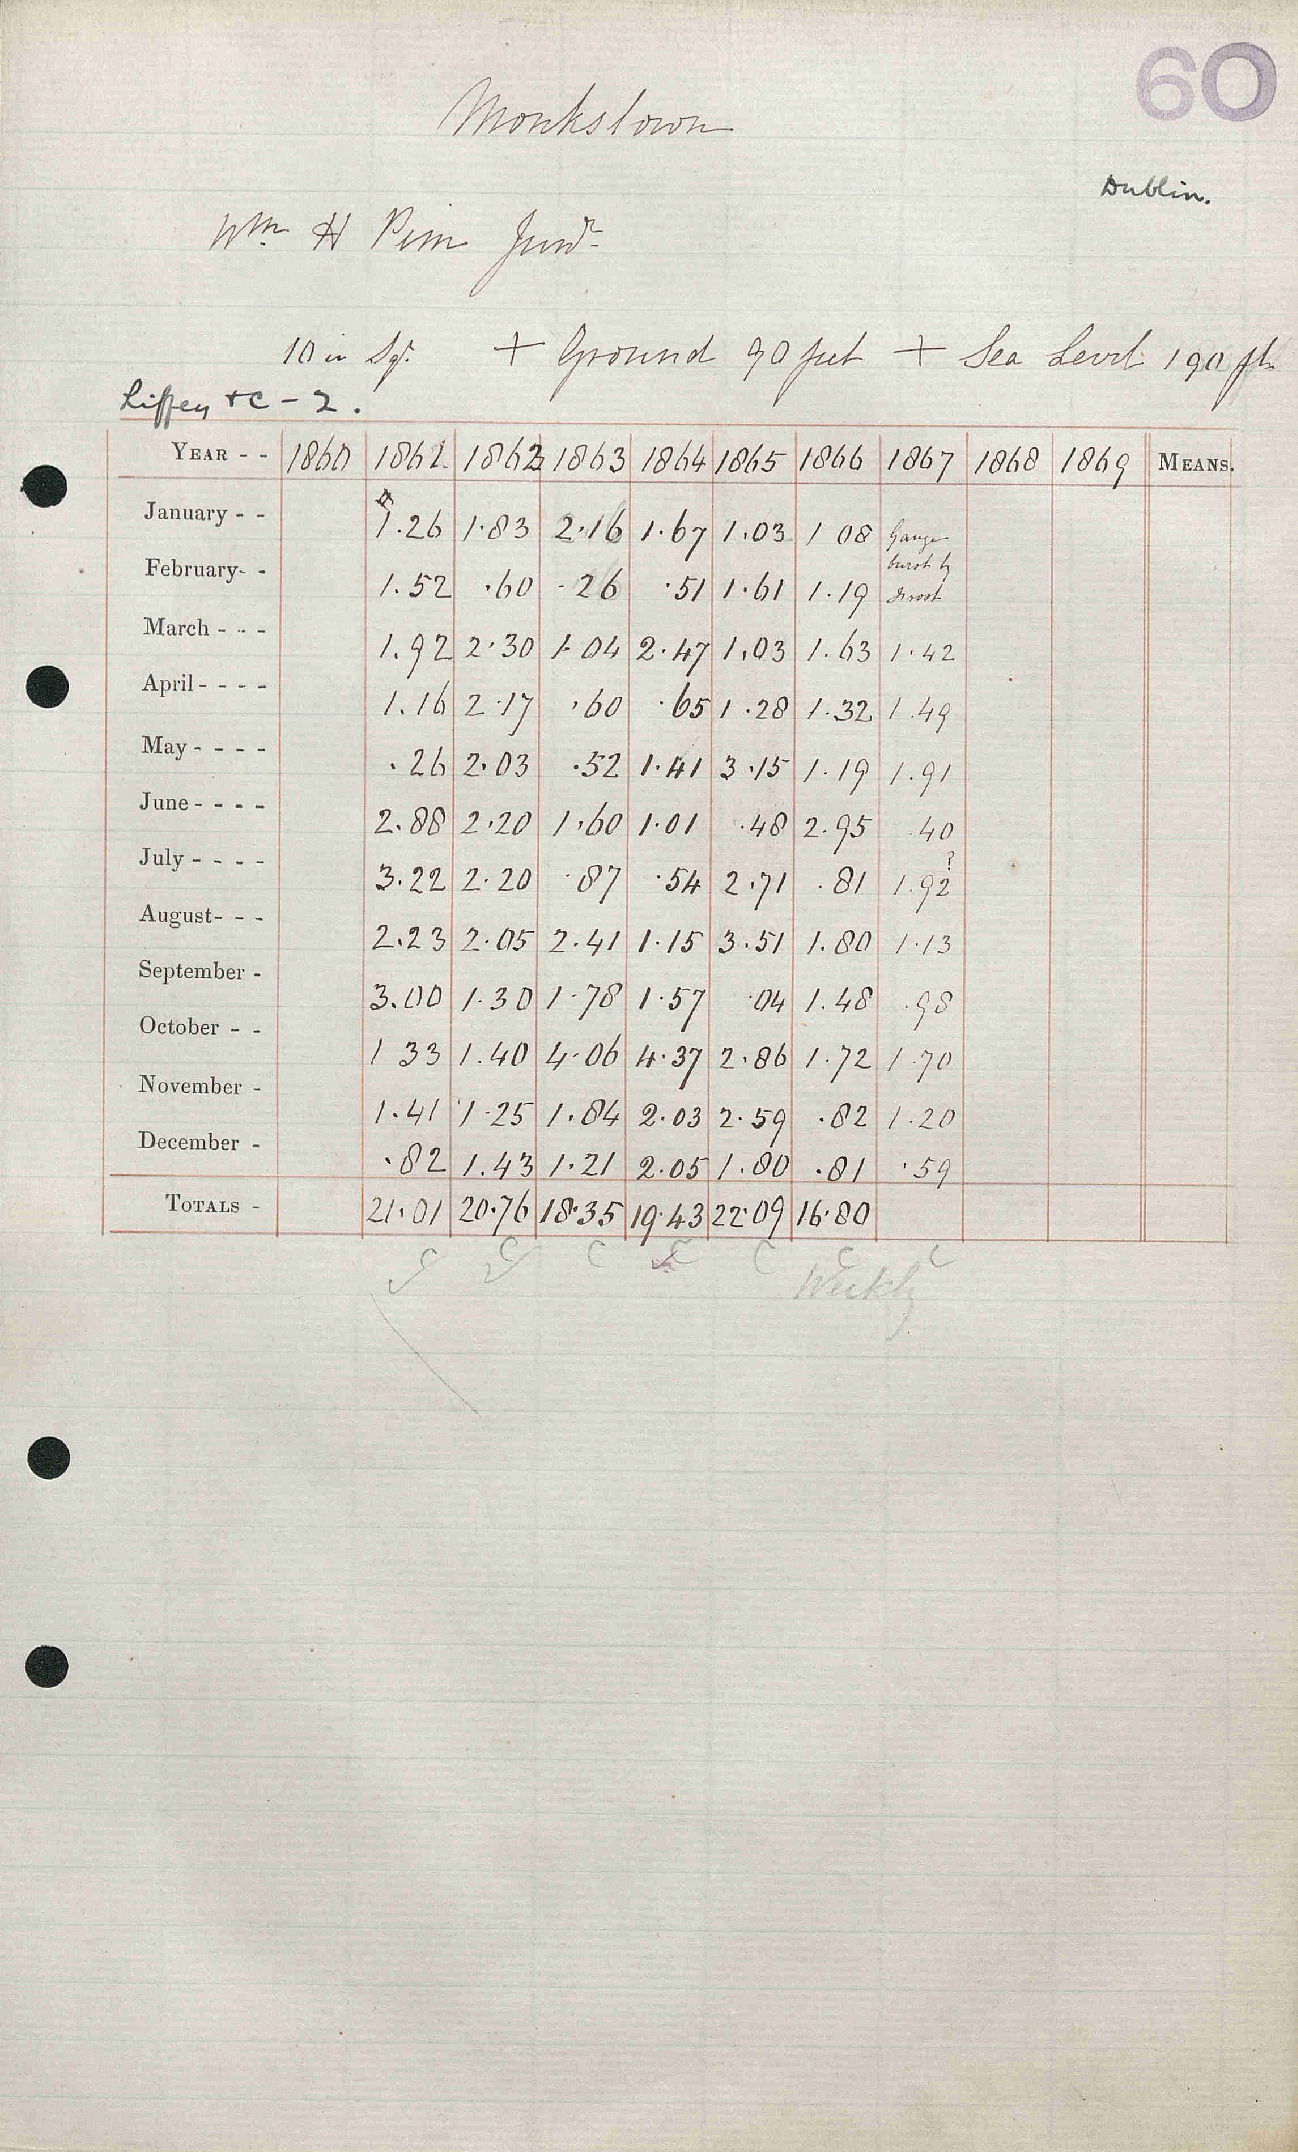 60
Monkstown
Dublin.
Wm H Pim Junr
10 in Sqr. + Ground 90 feet + Sea Level 190 ft
Liffey &c - 2.
YEAR - - 1860 1861 1862 1863 1864 1865 1866 1867 1868 1869 MEANS.
January - - 1.26 1.83 2.16 1.67 1.03 1 08 Gauge
burst by
February- - 1.52 .60 .26 .51 1.61 1.19 frost
March - - - 1.92 2.30 1.04 2.47 1.03 1.63 1.42
April - - - - 1.16 2.17 .60 .65 1.28 1.32 1.49
May - - - - .26 2.03 .52 1.41 3.15 1.19 1.91
June - - - - 2.88 2.20 1.60 1.01 .48 2.95 .40
July - - - - 3.22 2.20 .87 .54 2.71 .81 1.92 ?
August- - - 2.23 2.05 2.41 1.15 3.51 1.80 1.13
September - 3.00 1.30 1.78 1.57 .04 1.48 .98
October - - 1 33 1.40 4.06 4.37 2.86 1.72 1.70
November - 1.41 1.25 1.84 2.03 2.59 .82 1.20
December - .82 1.43 1.21 2.05 1.80 .81 .59
TOTALS - 21.01 20.76 18.35 19.43 22.09 16.80
C C C C C C C
Weekly